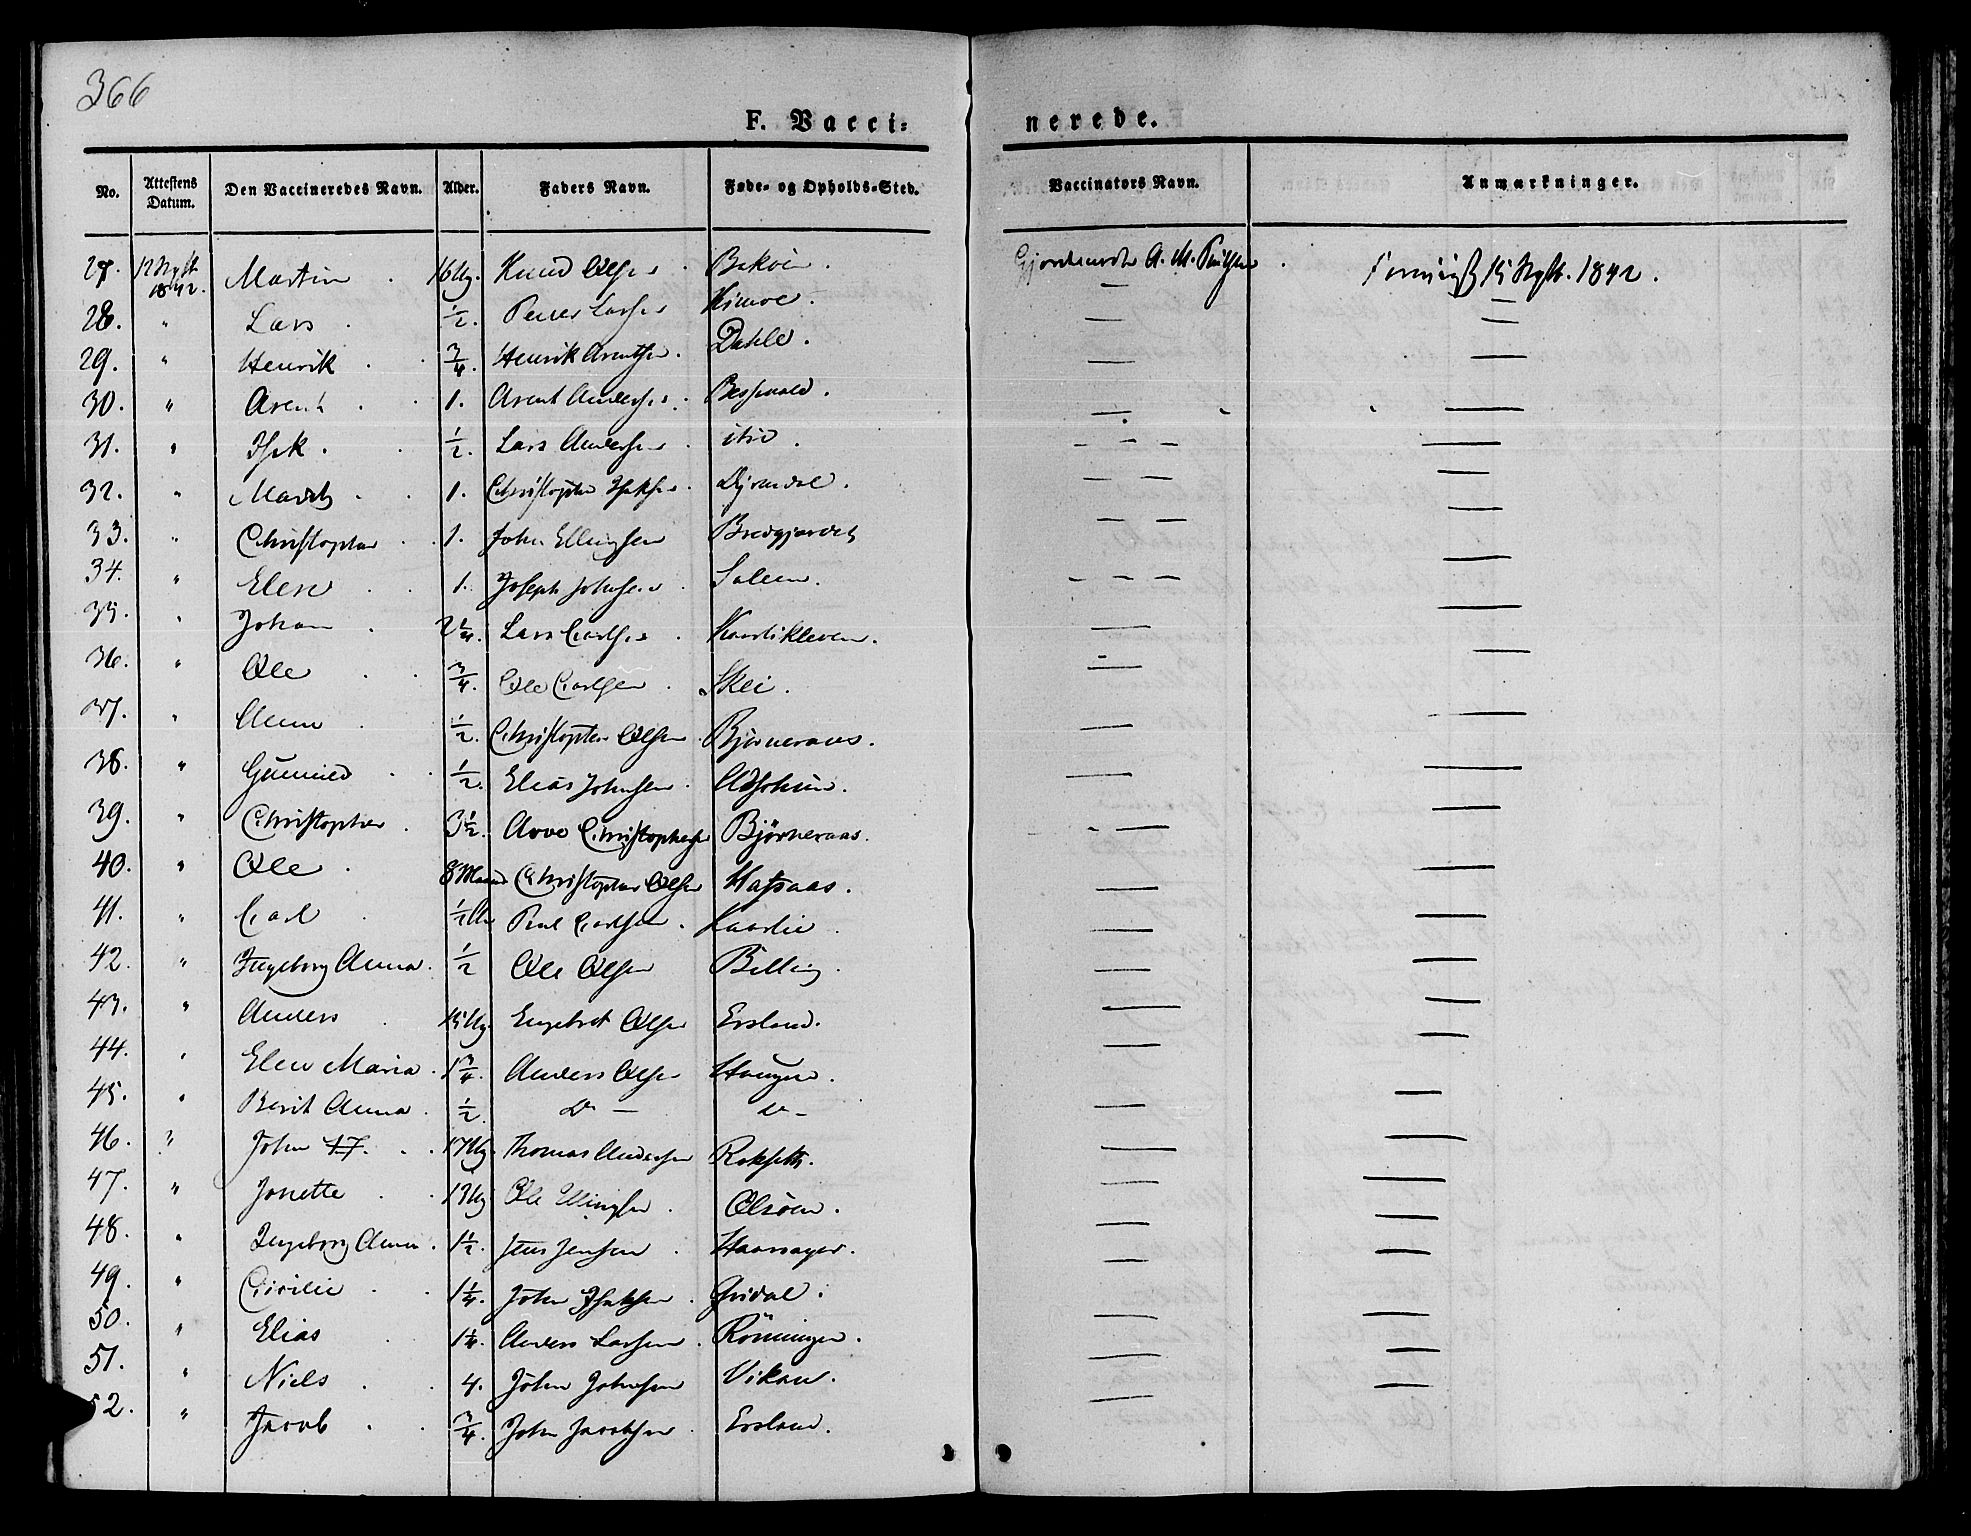 366
F. Vacci-
nerede.
No. Attestens Datum. Den Vaccineredes Navn. Alder. Faders Navn. Føde- og Opholds-Sted. Vaccinators Navn. Anmærkninger.
27. 12 1842. Martin 16 Ug. Knud Olsen Gjordemoder A. M. 15 1842.
28. " Lars ½. Peder Larsen — —
29. " Henrik ¾. Henrik Arentsen. Dahle. — —
30. " Arent 1. Arent Andersen. — —
31. " Isak. ½. Lars Andersen — —
32. " 1. Christopher Isaksen. Dyrendal. — —
33. " Christopher 1. John Ellingsen Bredgjerdet — —
34. " Elen 1. Joseph Johnsen Solem. — —
35. " Johan 2¼. Lars Carlsen — —
36. " Ole ¾. Ole Carlsen Skei. — —
37. " Anne ½. Christopher Olsen Bjørneraas. — —
38. " Gunnild ½. Elias Johnsen — —
39. " Christopher 3½. Arve Christophersen Bjørneraas. — —
40. " Ole 8 Maaned Christopher Olsen — —
41. " Carl ½ Paul Carlsen — —
42. " Ingeborg Anna. ½ Ole Olsen Belling. — —
43. " Anders 15 Ug. Engebret Olsen Ersland. — —
44. " Elen Maria 1¾. Anders Olsen Haugen. — —
45. " Berit Anna ½. Do — Do — — —
46. " John 17. 17 Ug. Thomas Andersen Rokseth. — —
47. " Jonette 13 Ug. Ole Ellingsen Olsøen. — —
48. " Ingeborg Anna. 1½. Jens Jensen Haarsager. — —
49. " 1¼. John Isaksen — —
50. " Elias 1¼. Anders Larsen Rönningen. — —
51. " Niels 4. John Johnsen Vikan. — —
52. " Jacob ¾. John Jacobsen Ersland. — —